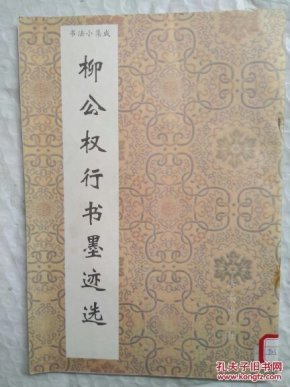 书法小集成
柳公权行书墨迹选
孔夫子旧书网